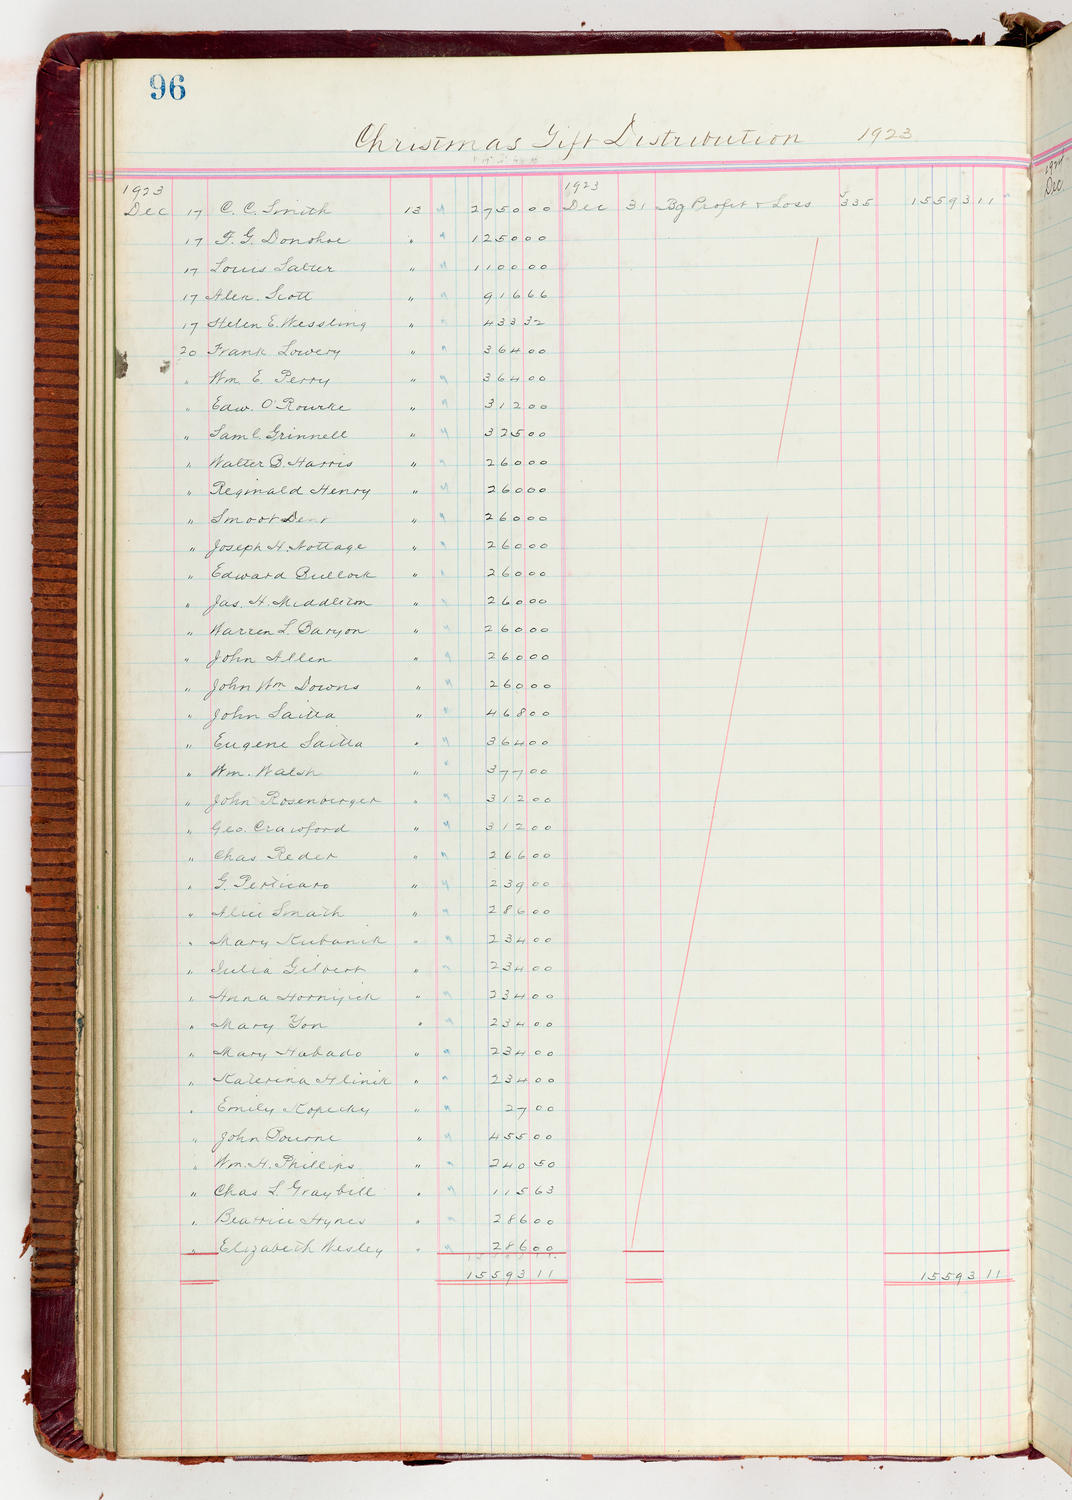 96
Christmas Gift Distribution 1923
1923 1923
Dec 17 C. C. Smith 13 " 2750 00 Dec 31 By Profit & Loss 335 15593 11
17 F. G. Donohoe " " 1250 00
17 Louis Salter " " 1100 00
17 Alex. Scott " " 916 66
17 Helen E. Wessling " " 433 32
20 Frank Lowery " " 364 00
" Wm. E. Perry " " 364 00
" Edw. O'Rourke " " 312 00
" Saml. Grinnell " " 325 00
" Walter B. Harris " " 260 00
" Reginald Henry " " 260 00
" Smoot Dent " " 260 00
" Joseph H. Nottage " " 260 00
" Edward Bullock " " 260 00
" Jas. H. Middleton " " 260 00
" Warren L. Baryon " " 260 00
" John Allen " " 260 00
" John Wm Downs " " 260 00
" John Saitta " " 468 00
" Eugene Saitta " " 364 00
" Wm. Walsh " " 377 00
" John Rosenberger " " 312 00
" Geo. Crawford " " 312 00
" Chas Reder " " 266 00
" G. Perticaro " " 239 00
" Alice Smath " " 286 00
" Mary Kubanik " " 234 00
" Julia Gilbert " " 234 00
" Anna Hornyich " " 234 00
" Mary Yon " " 234 00
" Mary Habado " " 234 00
" Katerina Hlinik " " 234 00
" Emily Kopecky " " 27 00
" John Bourne " " 455 00
" Wm. H. Phillips " " 240 50
" Chas L. Graybill " " 115 63
" Beatrice Hynes " " 286 00
" Elizabeth Wesley " " 286 00
15593 11 15593 11
1924
Dec.